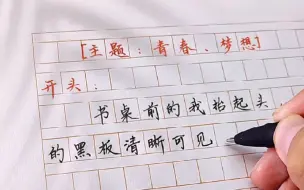 [主题：青春、梦想]
开头：
书桌前的我抬起头
的黑板清晰可见